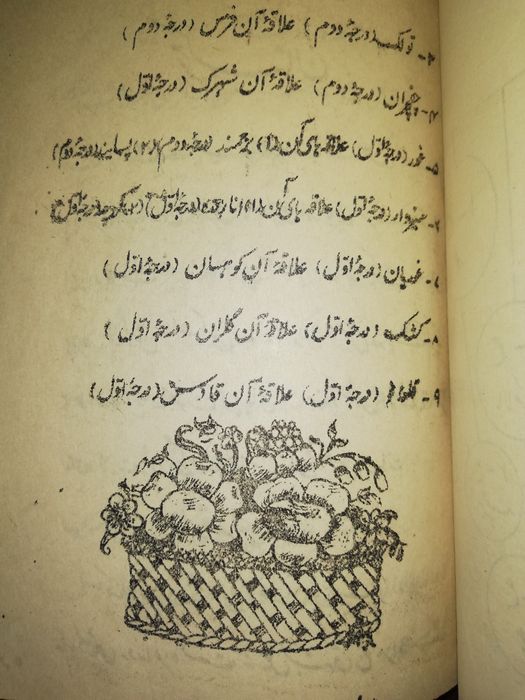 ۳- تولک (درجهٔ دوم) علاقهٔ آن فرس (درجهٔ دوم)
۴- چخچران (درجهٔ دوم) علاقهٔ آن شهرک (درجهٔ اوّل)
۵- غور (درجهٔ اوّل) علاقه‌های آن (۱) پرچمند (درجهٔ دوم) (۲) پسابند (درجهٔ دوم)
۶- سبزوار (درجهٔ اوّل) علاقه‌های آن (۱) اناردره (درجهٔ اوّل) (۲)
۷- غوریان (درجهٔ اوّل) علاقهٔ آن کوهسان (درجهٔ اوّل)
۸- کشک (درجهٔ اوّل) علاقهٔ آن گلران (درجهٔ اوّل)
۹- قلعه‌نو (درجهٔ اوّل) علاقهٔ آن قادس (درجهٔ اوّل)